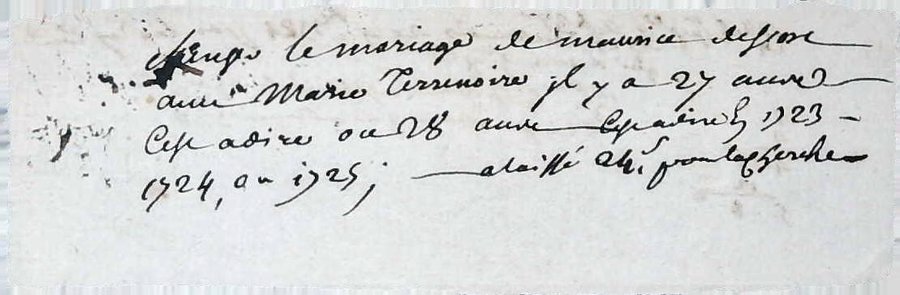 le mariage de maurice
avec Marie Terrenoire jl y a 27 annes
Cest adire ou 28 annes Cest adire 1723 -
1724, ou 1725; a laissé 24s pour la cherche